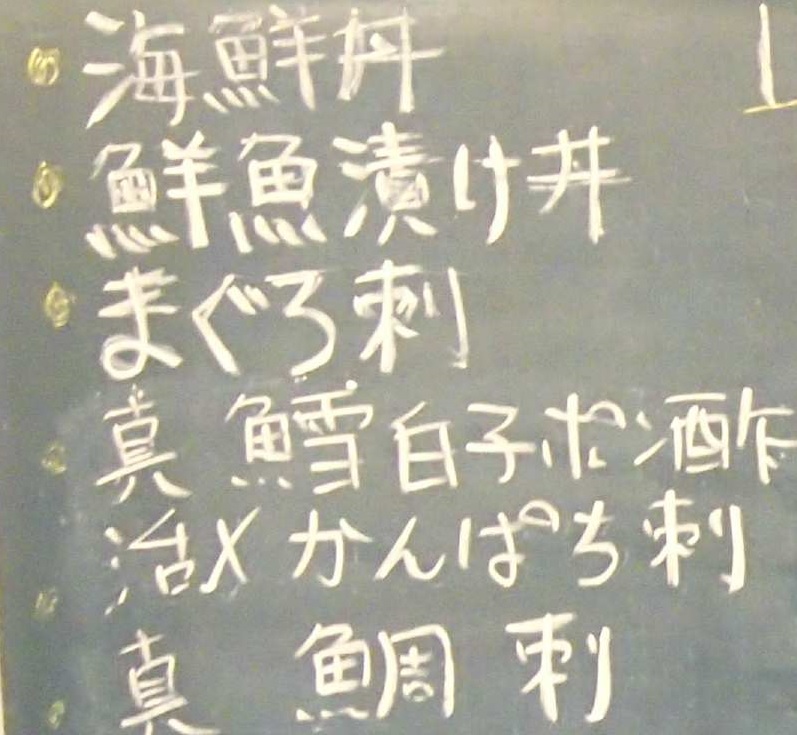 海鮮丼
鮮魚漬け丼
まぐろ刺
真鱈白子ポン酢
活〆かんぱち刺
真鯛刺